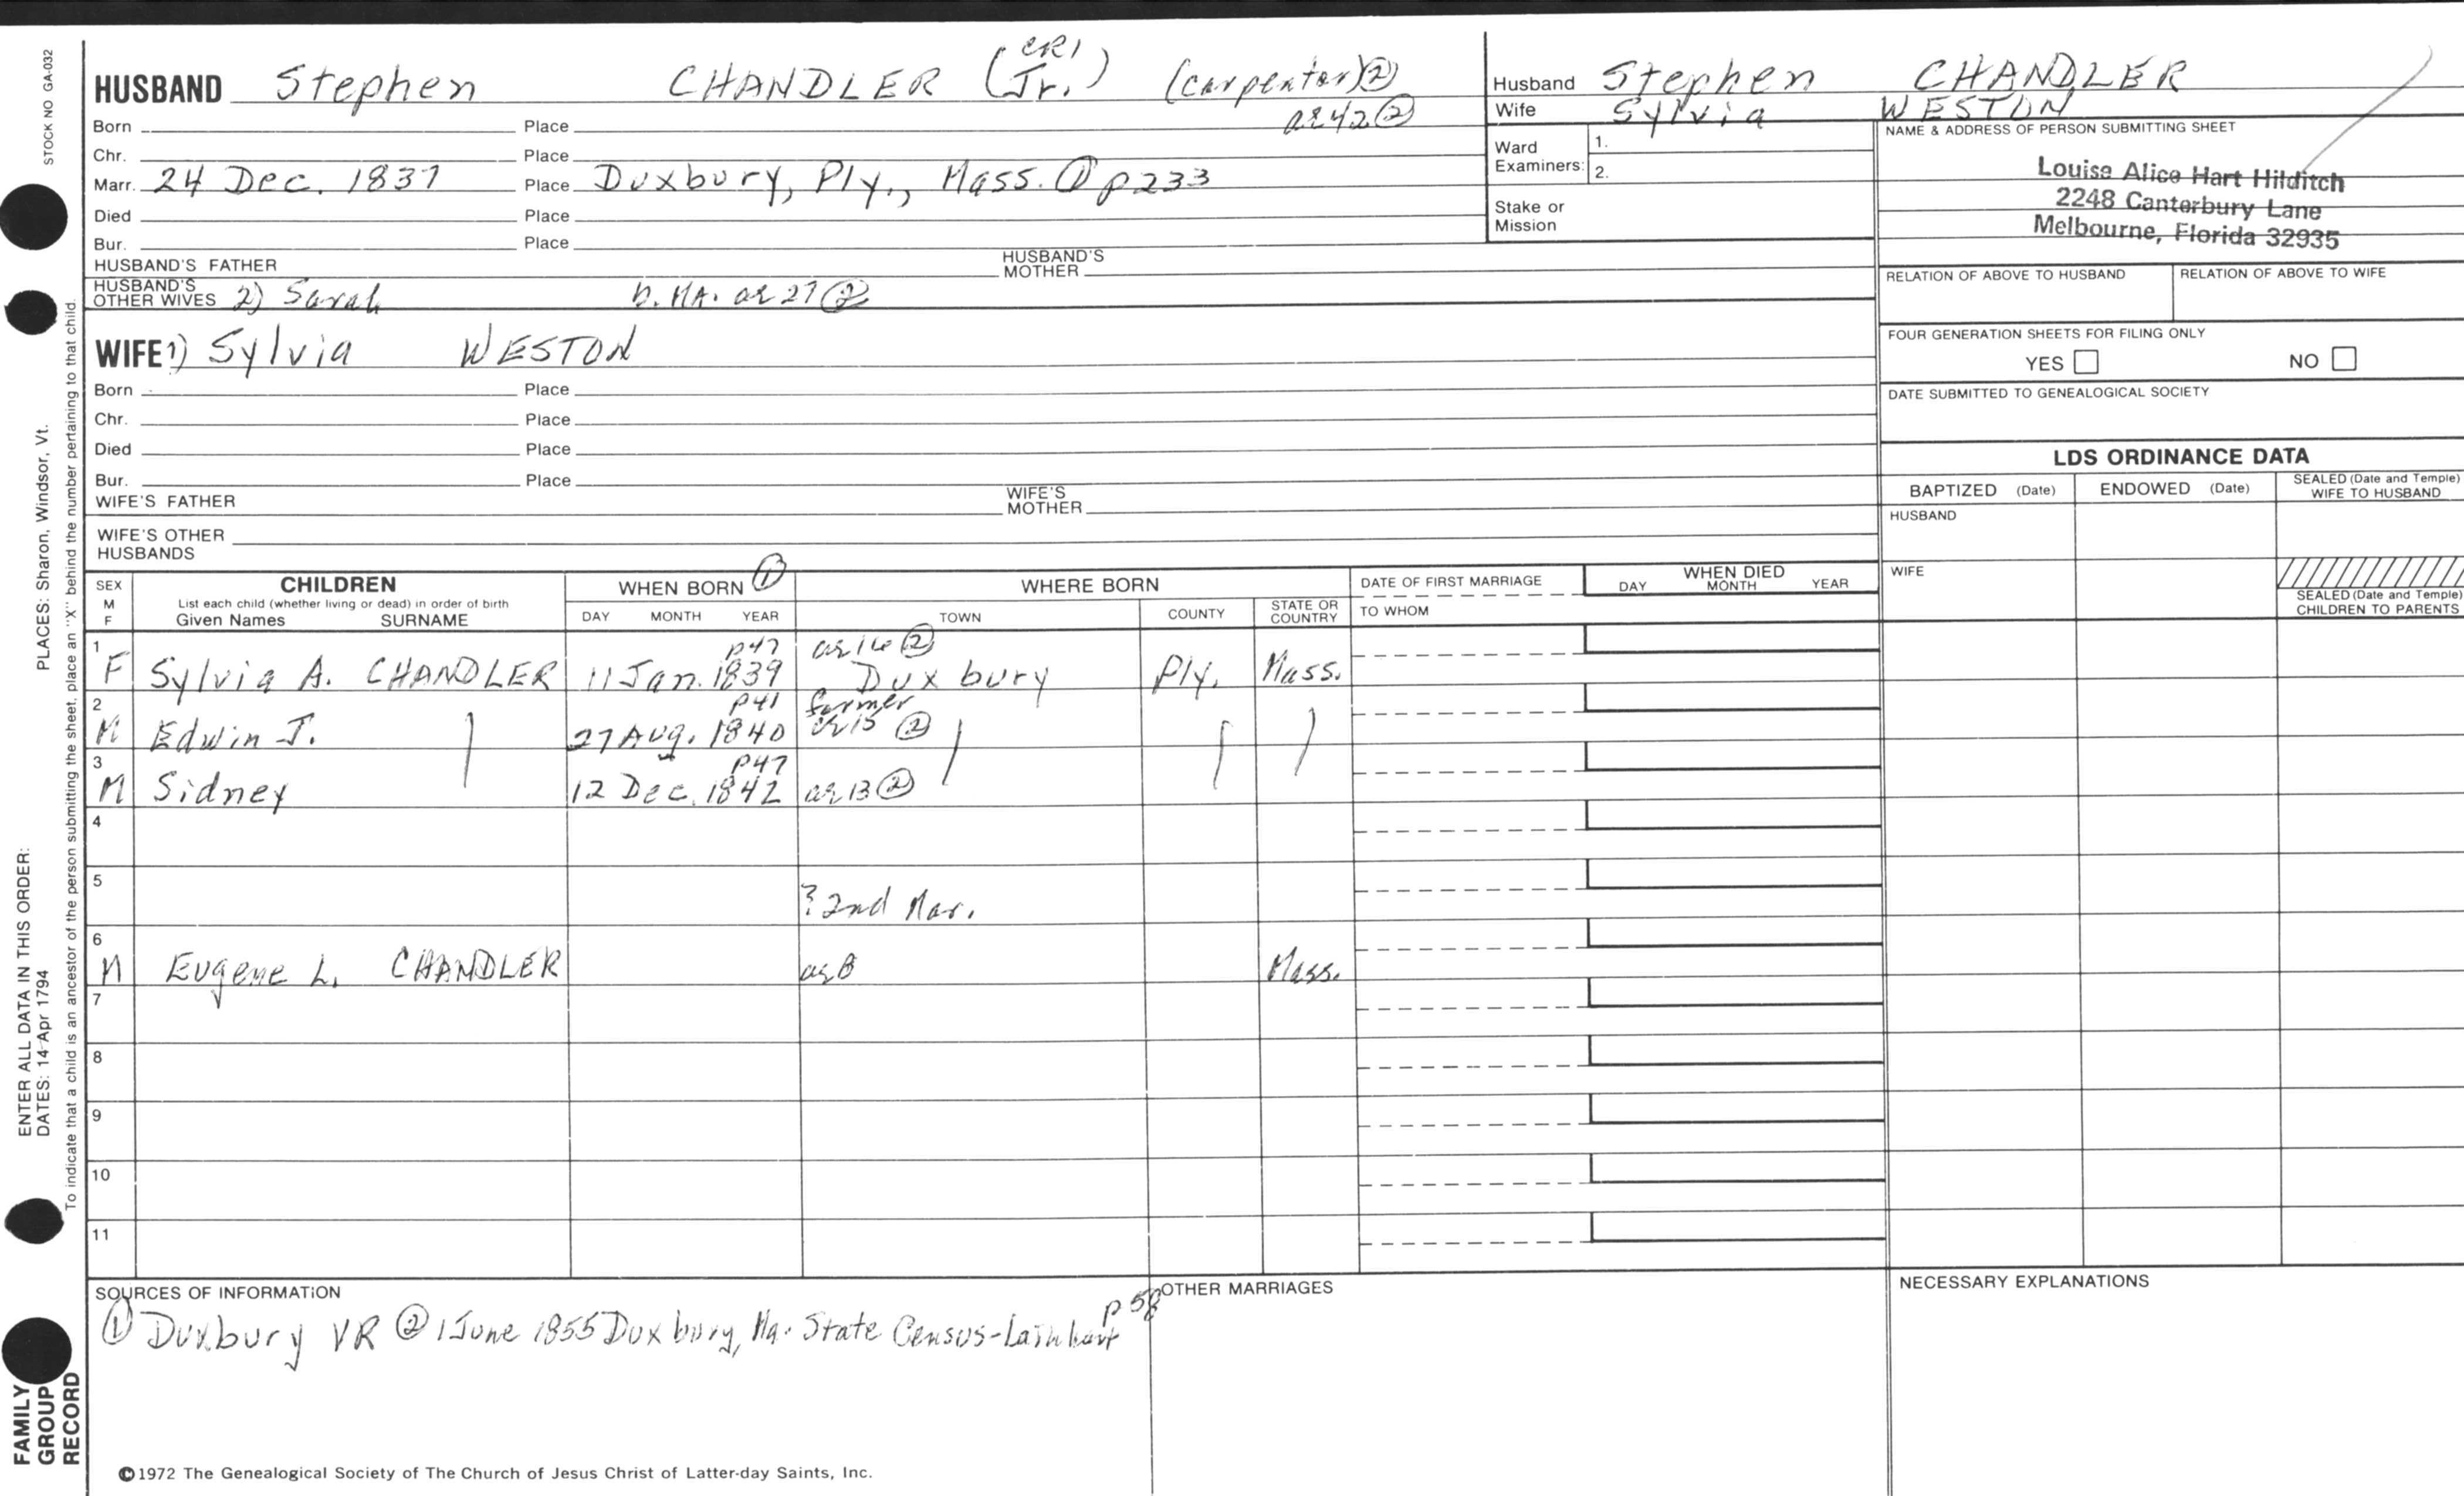 STOCK NO GA-032
PLACES: Sharon, Windsor, Vt.
ENTER ALL DATA IN THIS ORDER:
DATES: 14-Apr 1794
To indicate that a child is an ancestor of the person submitting the sheet, place an "X" behind the number pertaining to that child.
FAMILY
GROUP
RECORD
HUSBAND Stephen CHANDLER (Jr.) CR1 (carpenter) ②
ae 42 ②
Born Place
Chr. Place
Marr. 24 Dec. 1837 Place Duxbury, Ply., Mass. ① p233
Died Place
Bur. Place
HUSBAND'S FATHER HUSBAND'S MOTHER
HUSBAND'S OTHER WIVES 2) Sarah b. MA. ae 27 ②
WIFE 1) Sylvia WESTON
Born Place
Chr. Place
Died Place
Bur. Place
WIFE'S FATHER WIFE'S MOTHER
WIFE'S OTHER HUSBANDS
Husband Stephen CHANDLER
Wife Sylvia WESTON
Ward Examiners: 1.
2.
Stake or Mission
NAME & ADDRESS OF PERSON SUBMITTING SHEET
Louise Alice Hart Hilditch
2248 Canterbury Lane
Melbourne, Florida 32935
RELATION OF ABOVE TO HUSBAND RELATION OF ABOVE TO WIFE
FOUR GENERATION SHEETS FOR FILING ONLY
YES NO
DATE SUBMITTED TO GENEALOGICAL SOCIETY
LDS ORDINANCE DATA
BAPTIZED (Date) ENDOWED (Date) SEALED (Date and Temple) WIFE TO HUSBAND
HUSBAND
WIFE
SEALED (Date and Temple) CHILDREN TO PARENTS
SEX M F
CHILDREN
List each child (whether living or dead) in order of birth
Given Names SURNAME
WHEN BORN ①
DAY MONTH YEAR
WHERE BORN
TOWN COUNTY STATE OR COUNTRY
DATE OF FIRST MARRIAGE
TO WHOM
WHEN DIED
DAY MONTH YEAR
p47 ae 16 ②
1 F Sylvia A. CHANDLER 11 Jan. 1839 Duxbury Ply. Mass.
p41 farmer
2 M Edwin J. 27 Aug. 1840 ae 15 ②
p47
3 M Sidney 12 Dec. 1842 ae 13 ②
4
5 ? 2nd Mar.
6 M Eugene L. CHANDLER ae 8 Mass.
7
8
9
10
11
SOURCES OF INFORMATION
① Duxbury VR ② 1 June 1855 Duxbury, Ma. State Census- p 58
OTHER MARRIAGES
NECESSARY EXPLANATIONS
©1972 The Genealogical Society of The Church of Jesus Christ of Latter-day Saints, Inc.